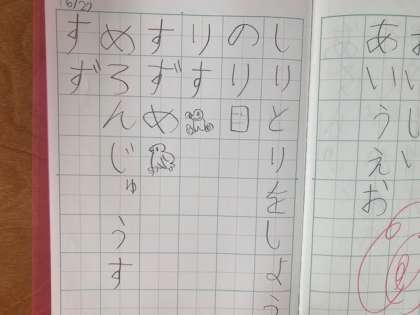 あいうえお
しりとりをしよう
のり
りす
すずめ
めろんじゅうす
すず